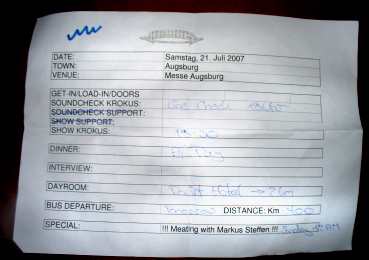 DATE: Samstag, 21. Juli 2007
TOWN: Augsburg
VENUE: Messe Augsburg
GET-IN/LOAD-IN/DOORS
SOUNDCHECK KROKUS: Line Check
SOUNDCHECK SUPPORT:
SHOW SUPPORT:
SHOW KROKUS:
DINNER: All Day
INTERVIEW:
DAYROOM: Hotel → 2 Km
BUS DEPARTURE: DISTANCE: Km 400
SPECIAL: !!! Meating with Markus Steffen !!! AM